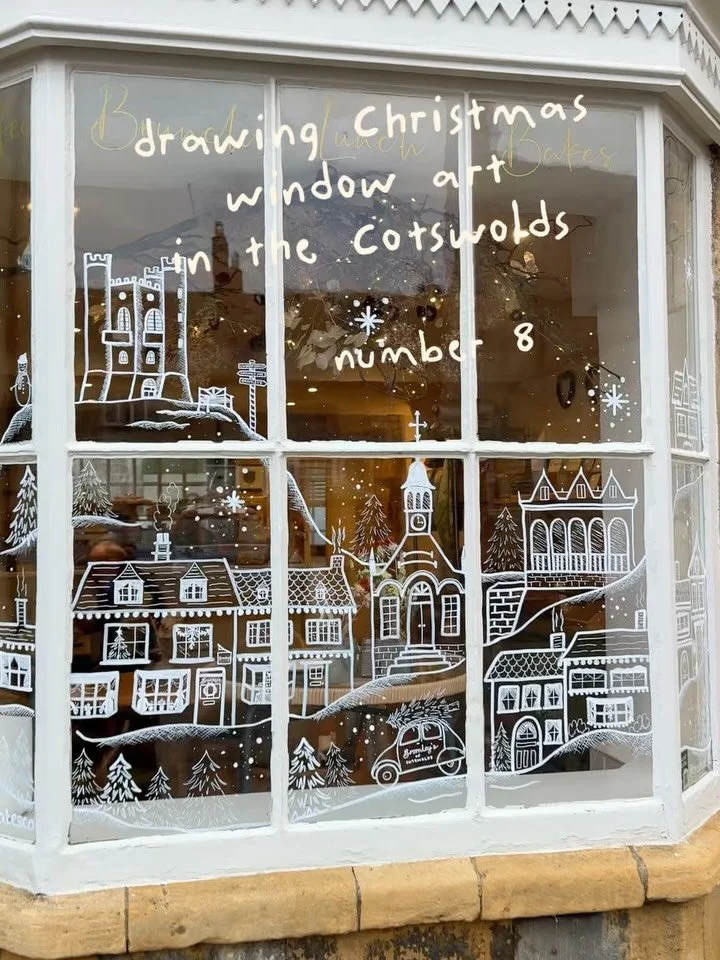 Brunch Lunch Bakes
drawing Christmas
window art
in the Cotswolds
number 8
Bromley's
of
COTSWOLDS